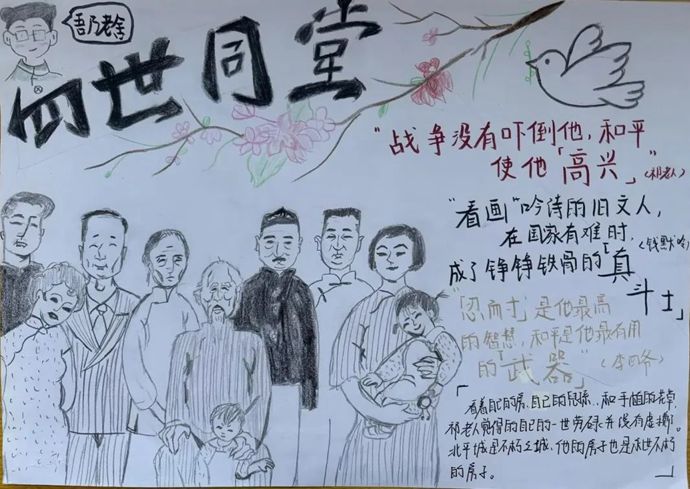 吾乃老舍
四世同堂
“战争没有吓倒他，和平
使他「高兴」”（祁老人）
“看画”吟诗的旧文人，
在国家有难时，（钱默吟）
成了铮铮铁骨的「真
斗士」
是他最高
的智慧，和平是他最有用
的「武器」（李四爷）
「看着自己的房，自己的儿孙，和手植的花草
祁老人觉得的自己的一世劳碌并没有虚掷。
北平城是不朽之城，他的房子也是永世不朽
的房子。」